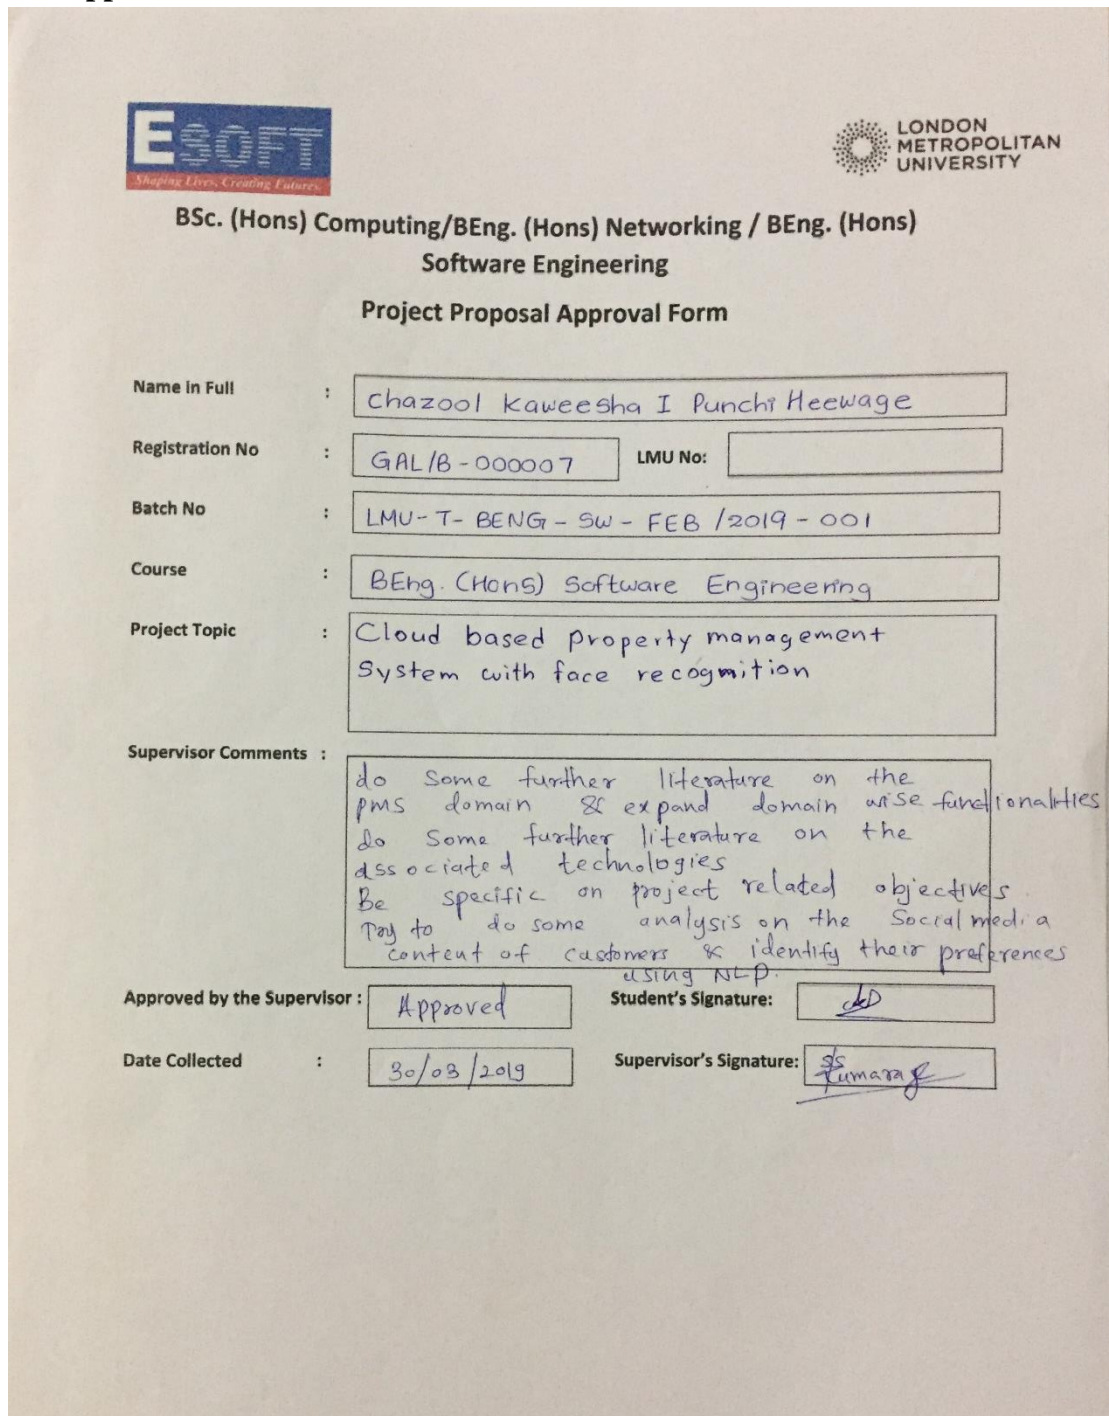 ESOFT
Shaping Lives, Creating Futures.
LONDON
METROPOLITAN
UNIVERSITY
BSc. (Hons) Computing/BEng. (Hons) Networking / BEng. (Hons)
Software Engineering
Project Proposal Approval Form
Name in Full : Chazool Kaweesha I Punchi Heewage
Registration No : GAL/B-000007 LMU No:
Batch No : LMU-T-BENG-SW-FEB/2019-001
Course : BEng. (Hons) Software Engineering
Project Topic : Cloud based property management
System with face recogmition
Supervisor Comments :
do some further literature on the
pms domain & expand domain wise functionalities
do some further literature on the
associated technologies
Be specific on project related objectives.
Try to do some analysis on the Social media
content of customers & identify their preferences
using NLP.
Approved by the Supervisor : Approved Student's Signature:
Date Collected : 30/03/2019 Supervisor's Signature: